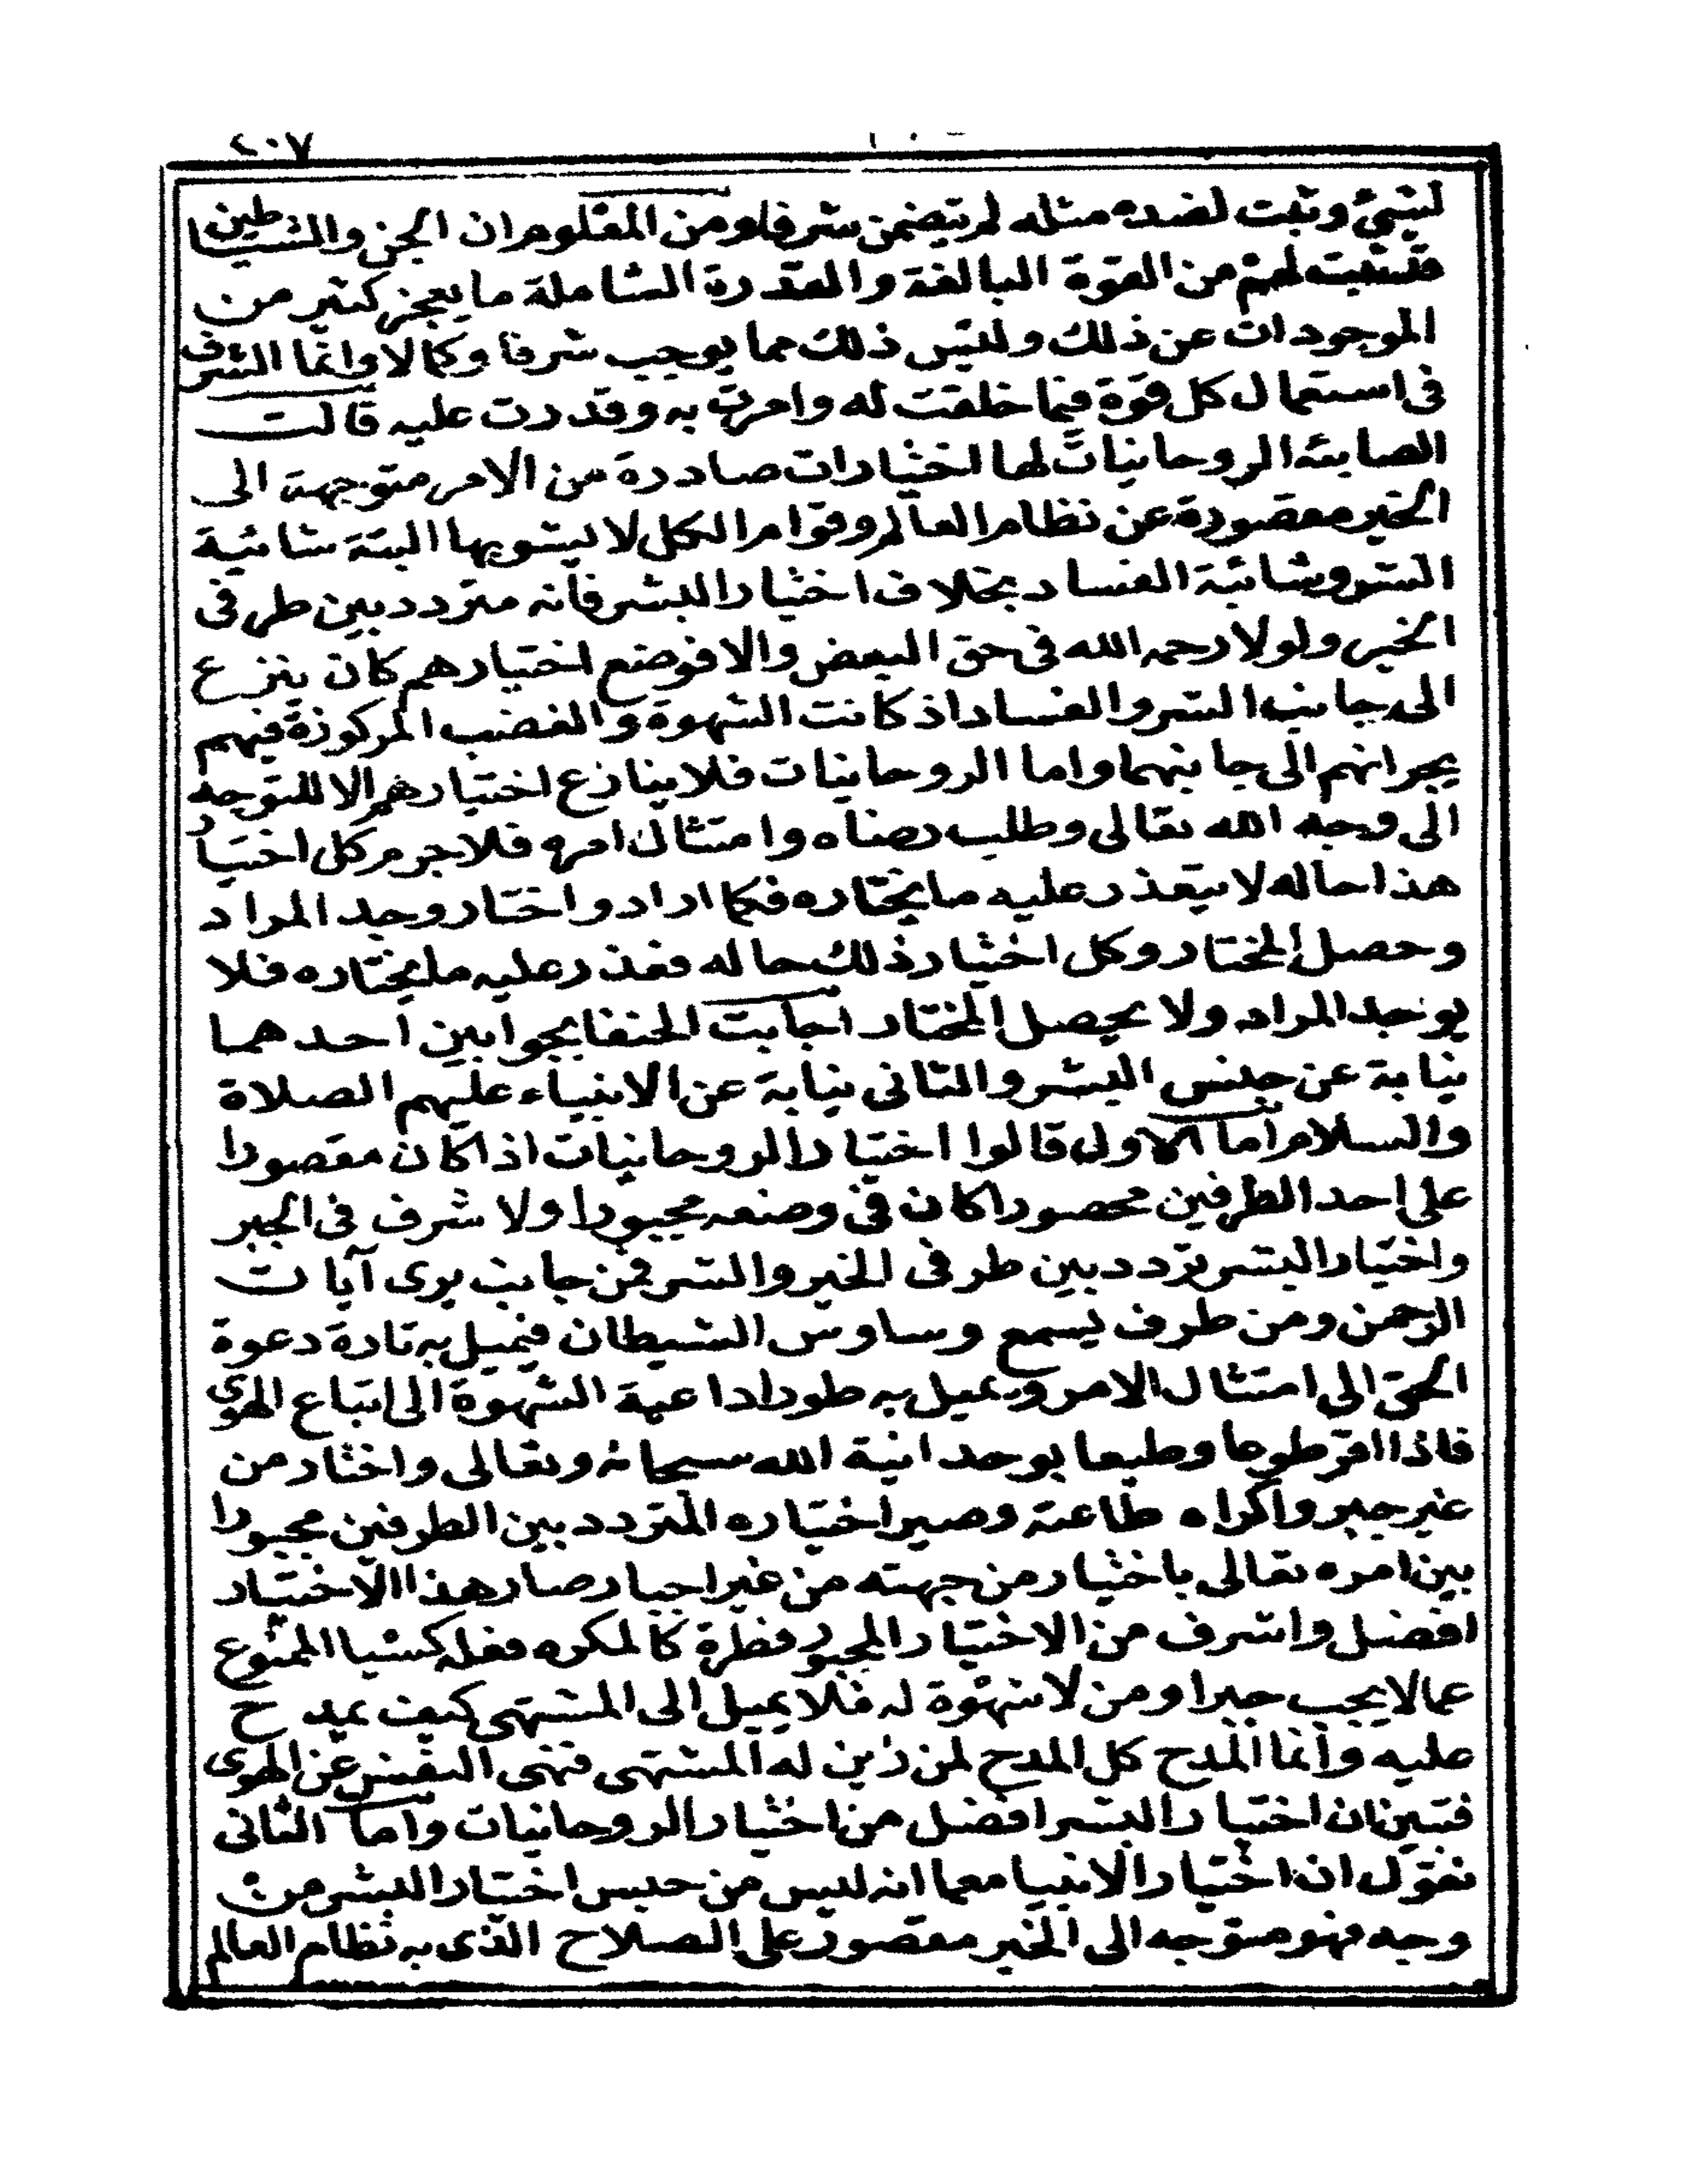 ٢٠٧
لشيئ وثبت لضده مثله لم يتضمن شرفا ومن المعلوم ان الجن والشياطين
فثبت لهم من القوة البالغة والقدرة الشاملة ما يعجز كثير من
الموجودات عن ذلك وليس ذلك مما يوجب شرفا وكمالا وانما الشرف
فى استعمال كل قوة فيما خلقت له وامرت به وقدرت عليه قالت
الصابئه الروحانيات لها اختيارات صادرة من الامر متوجهة الى
الخير مقصورة عن نظام العالم وقوام الكل لا يشوبها البتة شائبة
الشر وشائبة الفساد بخلاف اختيار البشر فانه متردد بين طرفى
الخير ولولا رحمه الله فى حق البعض والا فوضع اختيارهم كان ينزع
الى جانب الشر والفساد اذ كانت الشهوة والغضب المركوزة فيهم
يجرانهم الى جانبهما واما الروحانيات فلا ينازع اختيارهم الا للتوجه
الى وجه الله تعالى وطلب رضاه وامتثال امره فلا جرم كل اختيار
هذا حاله لا يتعذر عليه ما يختاره فكما اراد واختار وجد المراد
وحصل المختار وكل اختيار ذلك حاله فعذر عليه ما يختاره فلا
يوجد المراد ولا يحصل المختار اجابت الحنفا بجوابين احدهما
نيابة عن جنس البشر والثانى نيابة عن الانبياء عليهم الصلاة
والسلام اما الاولى قالوا اختيار الروحانيات اذا كان مقصورا
على احد الطرفين محصورا كان فى وضعه مجبورا ولا شرف فى الجبر
واختيار البشر تردد بين طرفى الخير والشر فمن جانب يرى آيات
الرحمن ومن طرف يسمع وساوس الشيطان فيميل به تارة دعوة
الحق الى امتثال الامر ويميل به طورا داعية الشهوة الى اتباع الهوى
فاذا اقر طوعا وطبعا بوحدانية الله سبحانه وتعالى واختار من
غير جبر واكراه طاعته وصير اختياره المتردد بين الطرفين مجبورا
بين امره تعالى باختيار من جهته من غير اجبار صار هذا الاختيار
افضل واشرف من الاختيار المجبور فطرة كالمكره فعله كسبا الممنوع
عما لا يجب جبرا ومن لا شهوة له فلا يميل الى المشتهى كيف يمدح
عليه وانما المدح كل المدح لمن زين له المشتهى فنهى النفس عن الهوى
فتبين ان اختيار البشر افضل من اختيار الروحانيات واما الثانى
نقول ان اختيار الانبيا معما انه ليس من جنس اختيار البشر من
وجه فهو متوجه الى الخير مقصور على الصلاح الذى به نظام العالم